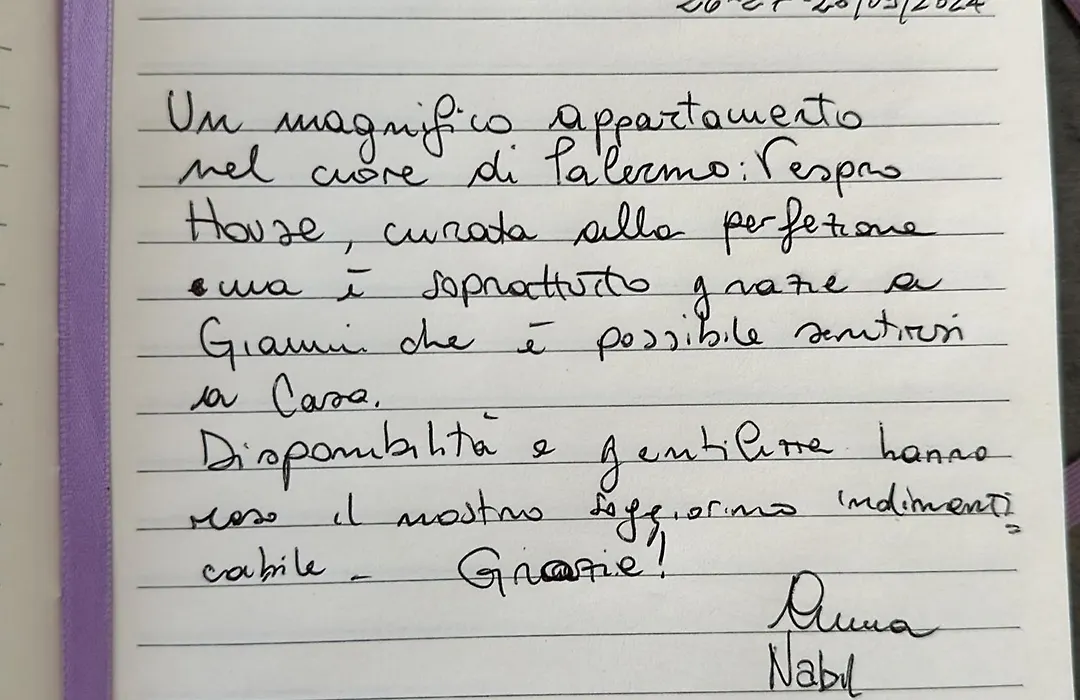 26-27-28/09/2024
Un magnifico appartamento
nel cuore di Palermo: Vespro
House, curata alla perfezione
ma è soprattutto grazie a
Gianni che è possibile sentirsi
a Casa.
Disponibilità e gentilezza hanno
reso il nostro soggiorno indimenti
cabile - Grazie!
Anna
Nabil